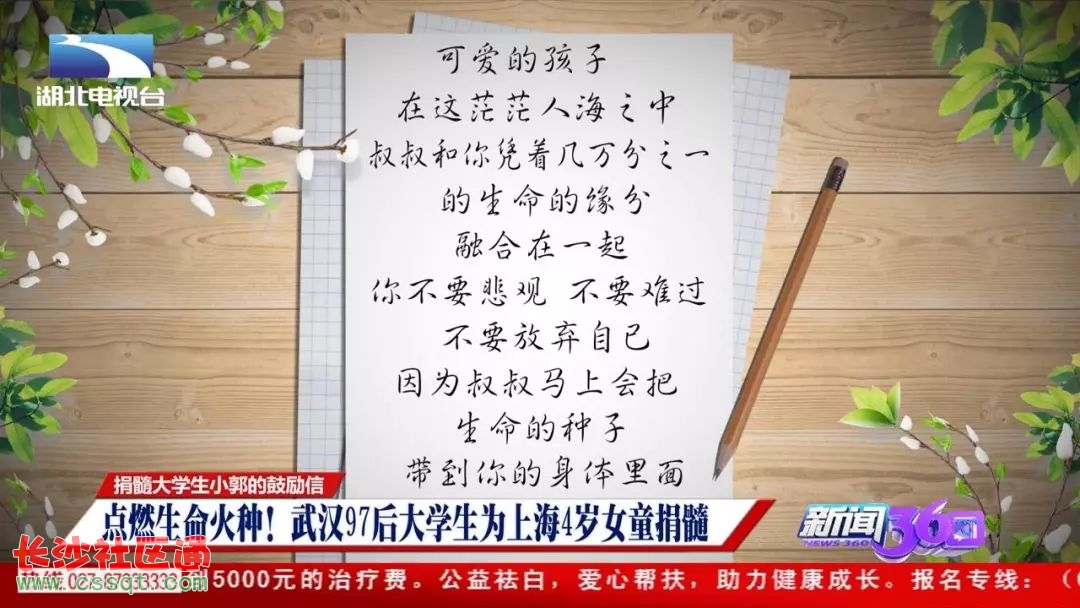 湖北电视台
可爱的孩子
在这茫茫人海之中
叔叔和你凭着几万分之一
的生命的缘分
融合在一起
你不要悲观 不要难过
不要放弃自已
因为叔叔马上会把
生命的种子
带到你的身体里面
捐髓大学生小郭的鼓励信
点燃生命火种！武汉97后大学生为上海4岁女童捐髓
新闻360
NEWS 360
长沙社区通
www.cssqt.com
5000元的治疗费。公益祛白，爱心帮扶，助力健康成长。报名专线：（